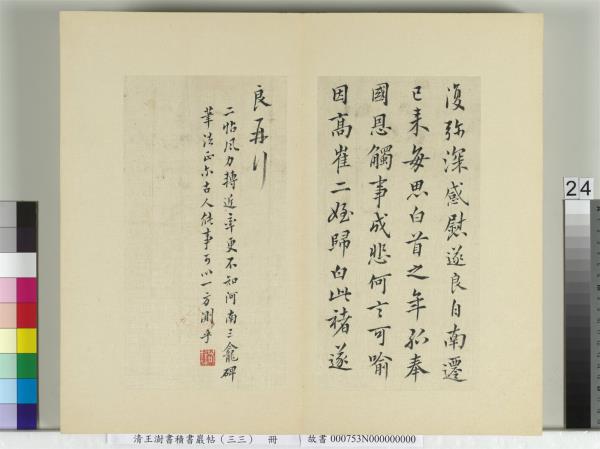 復弥深感慰遂良自南遷
已来每思白首之年孤奉
國恩觸事成悲何言可喻
因高崔二姪歸白此褚遂
良再行
二帖風力轉近率更不知河南三龕碑
筆法正尔古人能事可以一方測乎
24
清王澍書積書巖帖(三三) 冊
故書 000753N000000000